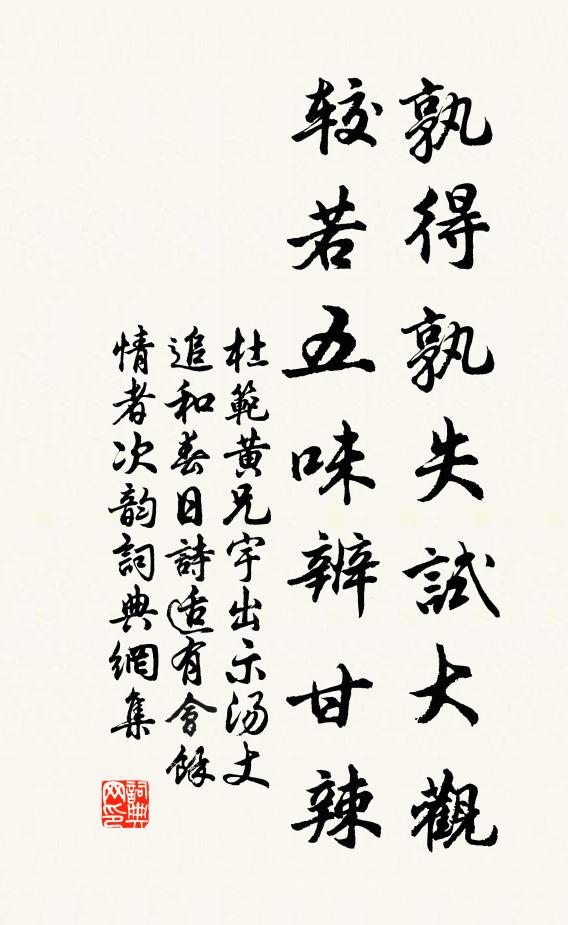 孰得孰失試大觀
较若五味辨甘辣
杜範黄兄宇出示汤丈
追和春日詩适有會餘
情者次韵詞典網集
詞典网印